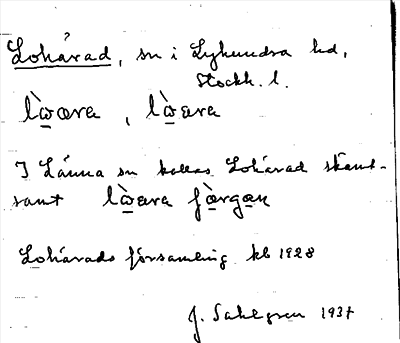 Lohärad, sn i Lyhundra hd,
Stockh. l.
lὼæra, lὼɛra
I Länna sn kallas Lohärad skämt-
samt lὼɛra fàrgan
Lohärads församling kb 1928
J. Sahlgren 1937